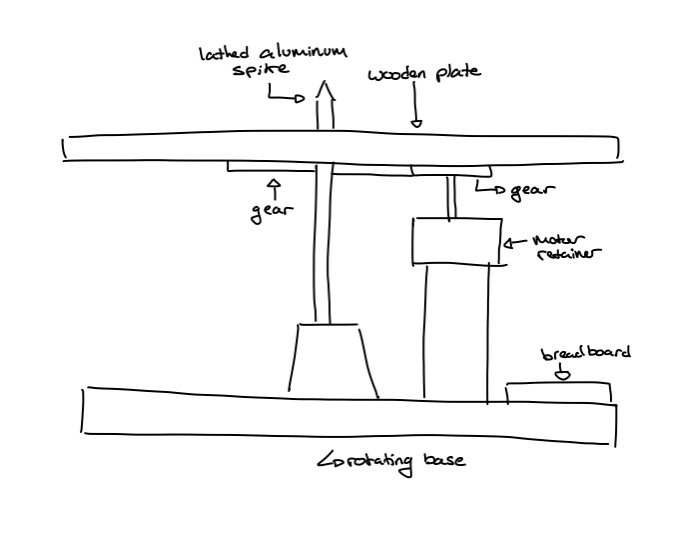 lathed aluminum
spike
wooden plate
gear
gear
motor
retainer
breadboard
rotating base